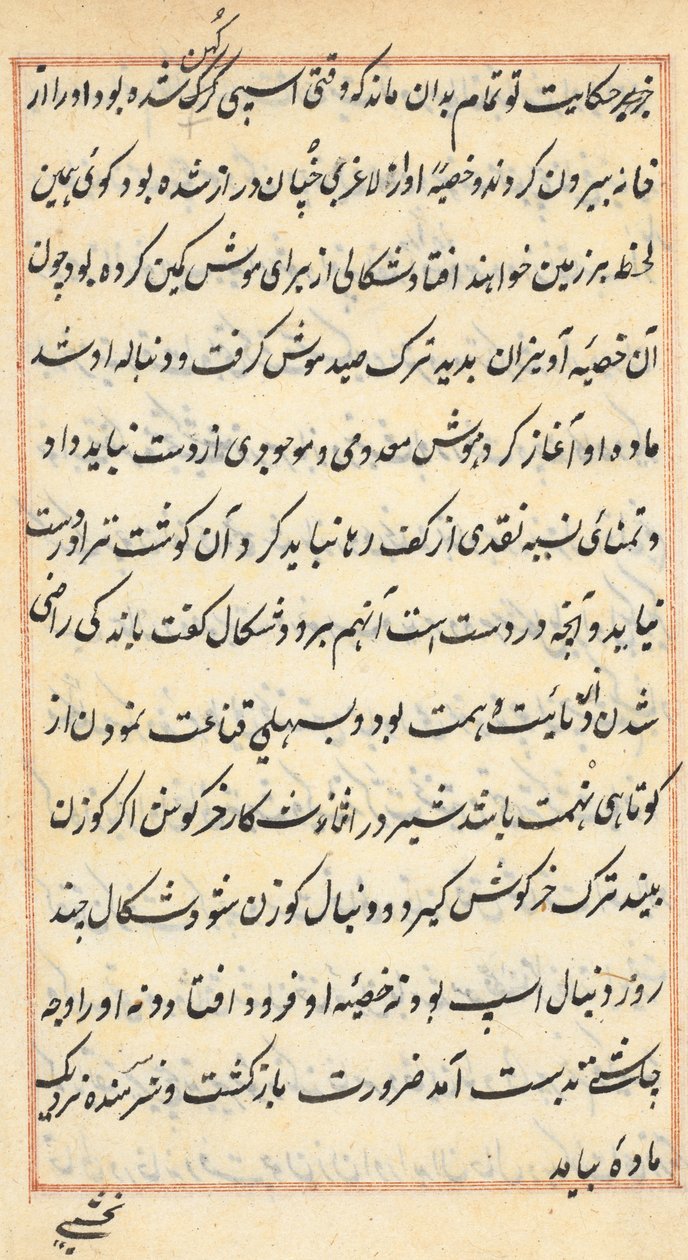 کهن
خر حکایت تو تمام بدان ماند که وقتی اسپی کرک شده بود او را از
خانه بیرون کردند و خصیهٔ او از لاغری چنان دراز شده بود کوئی همین
لحظه بر زمین خواهند افتاد شکالی از برای موش کمین کرده بود چون
آن خصیهٔ آویزان بدید ترک صید موش کرفت و دنباله او شد
ماده او آغاز کرد بموش معدومی و موجودی از دست نباید داد
و تمنائی نسیه نقدی از کف رها نباید کرد آن کوشت ترا در دست
نیاید و آنچه در دست است آنهم برود شکال کفت باندکی راضی
شدن از دنائیت همت بود و بسهلی قناعت نمودن از
کوتاهی نهمت باشد شیر در اثناء شکار خرکوش اکر کوزن
بیند ترک خرکوش کیرد و دنبال کوزن شود شکال چند
روز دنبال اسپ بود نه خصیهٔ او فرود افتاد و نه او را وجه
چاشتی بدست آمد ضرورت بازکشت و شرمنده نزدیک
مادهٔ بیاید
نخشبی